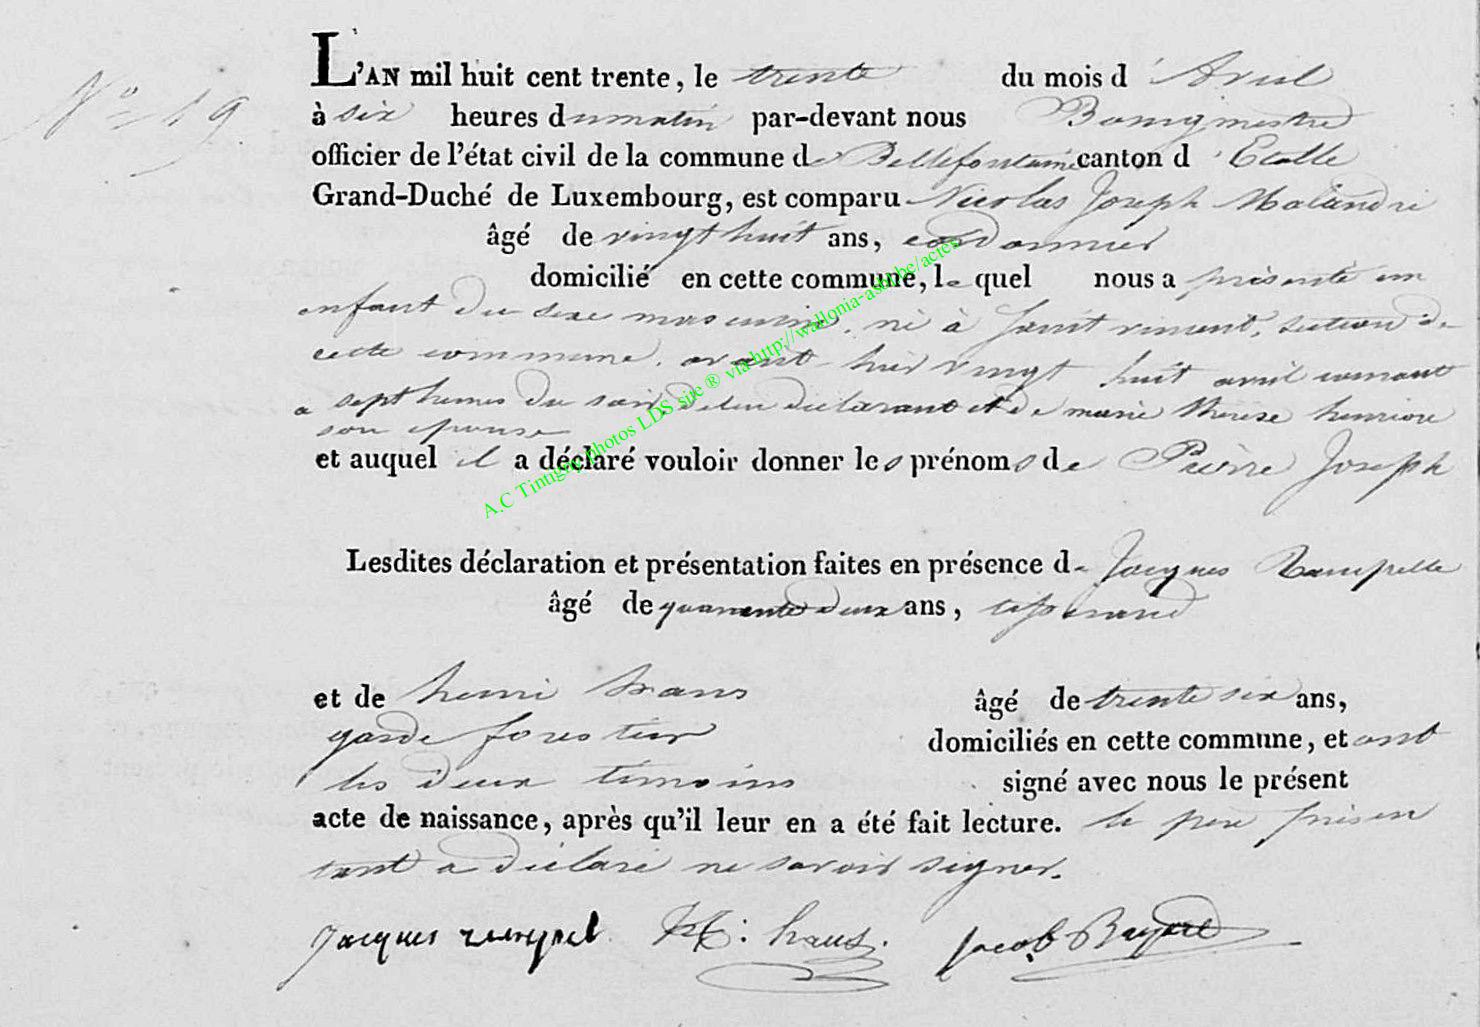 N° 19
L'AN mil huit cent trente, le trente du mois d'Avril
à six heures du matin par-devant nous Bourgmestre
officier de l'état civil de la commune de Bellefontaine canton d'Etalle
Grand-Duché de Luxembourg, est comparu Nicolas Joseph Malandri
âgé de vingt huit ans, cordonnier
domicilié en cette commune, le quel nous a présenté un
enfant du sexe masculin, né à Saint vincent, section de
cette commune, avant hier vingt huit avril courant
a sept heures du soir, de lui déclarant et de marie thérèse henrion
son épouse
et auquel il a déclaré vouloir donner les prénoms de Pierre Joseph
Lesdites déclaration et présentation faites en présence de Jacques
âgé de quarante deux ans, tisserand
et de henri âgé de trente six ans,
garde forestier domiciliés en cette commune, et ont
les deux témoins signé avec nous le présent
acte de naissance, après qu'il leur en a été fait lecture. le père présen
tant a déclaré ne savoir signer.
Jacques H: haus. Jacob
A.C Tintigny photos LDS site ® via http://wallonia-asbl.be/actes